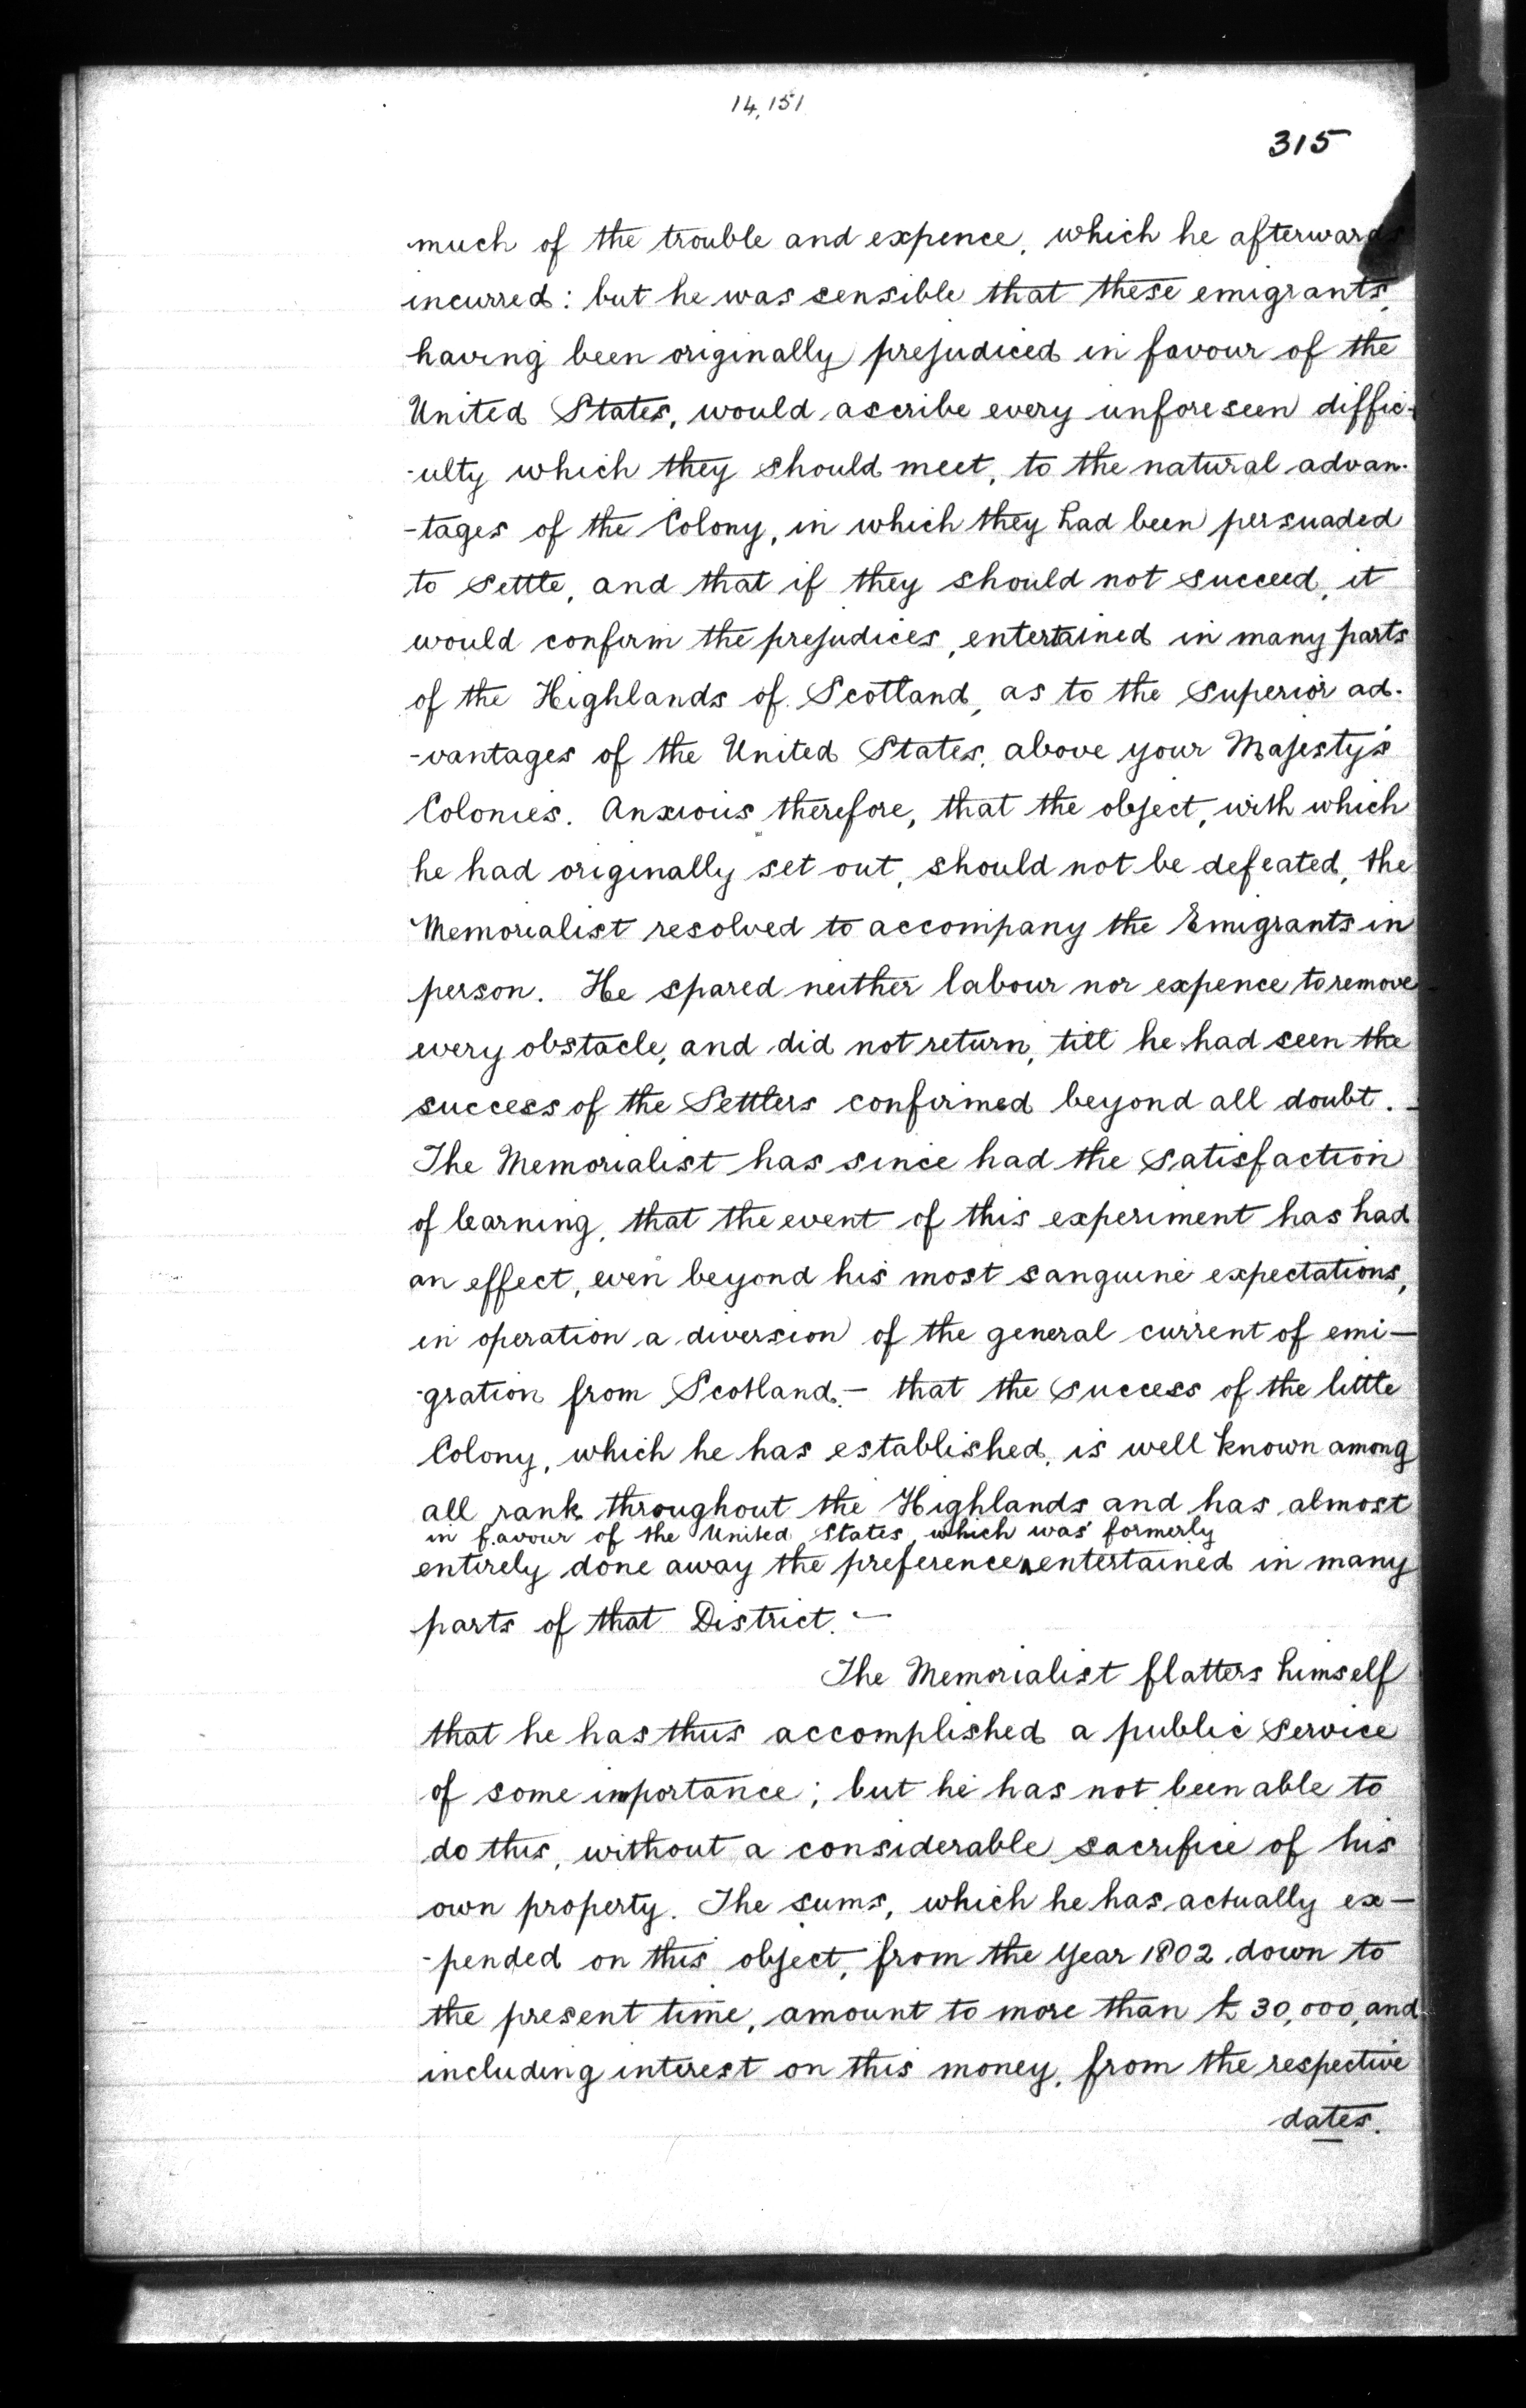 14,151
315
much of the trouble and expence, which he afterwards
incurred: but he was sensible that these emigrants,
having been originally prejudiced in favour of the
United States, would ascribe every unforeseen diffic-
-ulty which they should meet, to the natural advan-
-tages of the Colony, in which they had been persuaded
to Settle, and that if they should not succeed, it
would confirm the prejudices, entertained in many parts
of the Highlands of Scotland, as to the Superior ad-
-vantages of the United States, above your Majesty's
Colonies. Anxious therefore, that the object, with which
he had originally set out, should not be defeated, the
Memorialist resolved to accompany the Emigrants in
person. He spared neither labour nor expence to remove
every obstacle, and did not return, till he had seen the
success of the Settlers confirmed beyond all doubt.-
The Memorialist has since had the satisfaction
of learning, that the event of this experiment has had
an effect, even beyond his most sanguine expectations,
in operation a diversion of the general current of emi-
-gration from Scotland.- that the success of the little
Colony, which he has established, is well known among
all rank throughout the Highlands and has almost
in favour of the United States, which was formerly
entirely done away the preference ^ entertained in many
parts of that District. -
The Memorialist flatters himself
that he has thus accomplished a public Service
of some importance; but he has not been able to
do this, without a considerable sacrifice of his
own property. The sums, which he has actually ex-
-pended on this object, from the Year 1802 down to
the present time, amount to more than £30,000, and
including interest on this money, from the respective
dates.